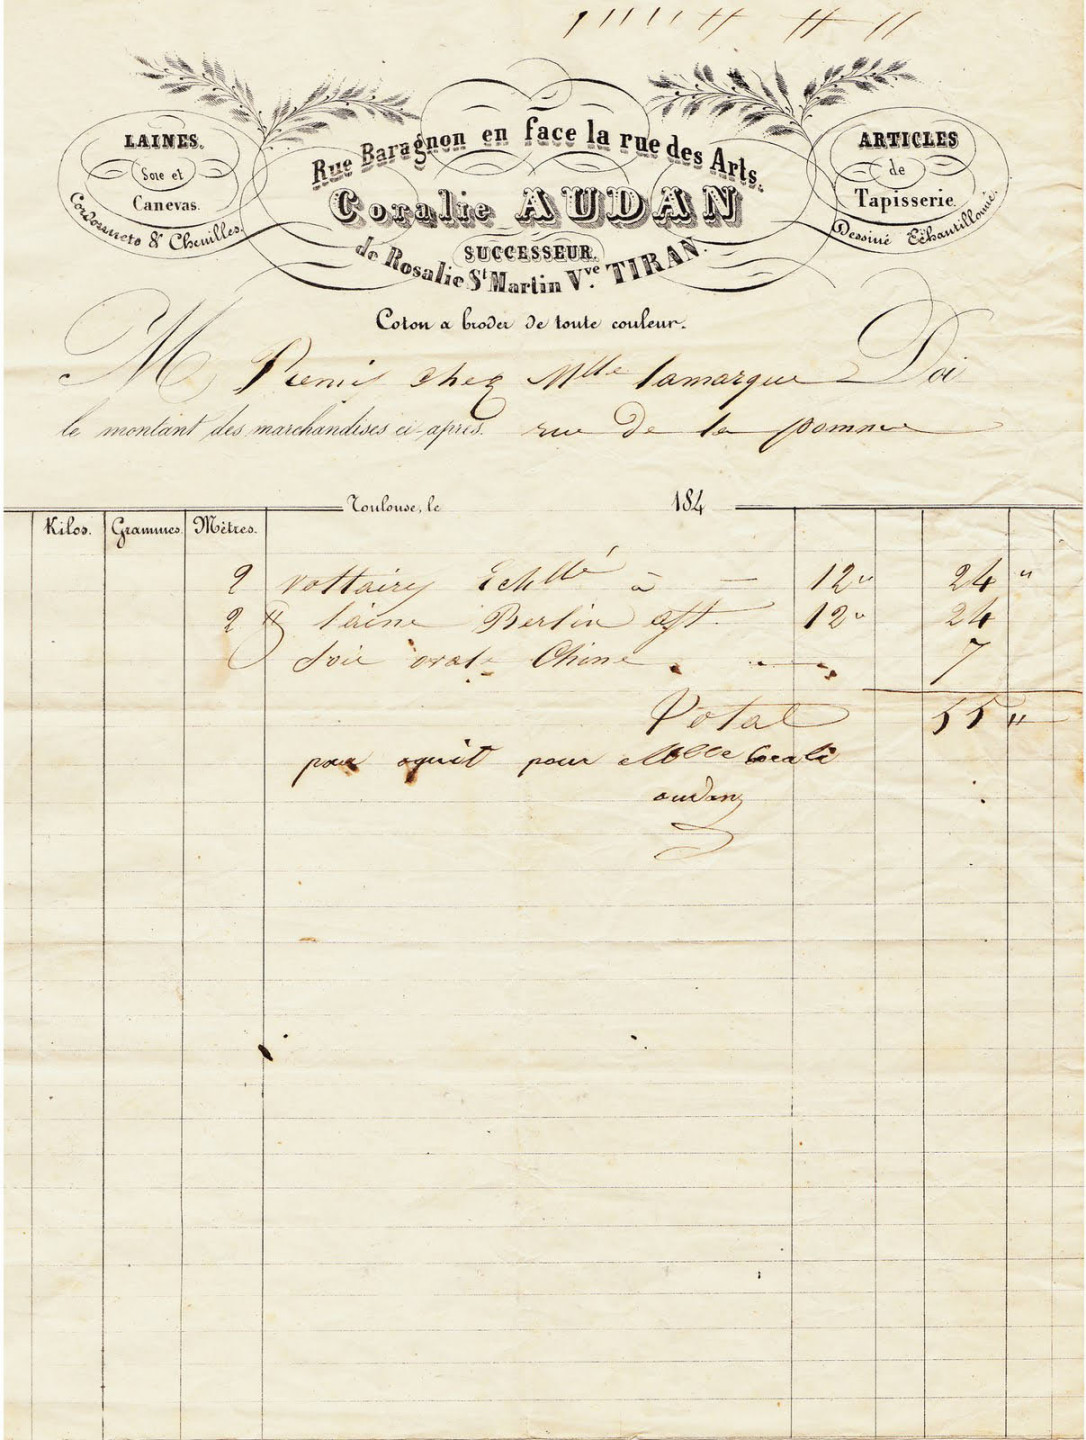 LAINES.
Soie et
Canevas.
Cordonnets & Chenilles.
Rue Baragnon en face la rue des Arts.
Coralie AUDAN
SUCCESSEUR.
de Rosalie St Martin Vve. TIRAN.
ARTICLES
de
Tapisserie.
Dessiné Echantillonné.
Coton a broder de toute couleur.
M chez Mlle lamarque Doi
le montant des marchandises ci après. rue de la pomme
Toulouse, le 184
Kilos. Grammes. Mètres.
2 à 12 " 24 "
2 " laine Berlin 12 " 24
Soie ovale Chine 7
Total 55 "
pour aquit pour Mlle Corali
audan